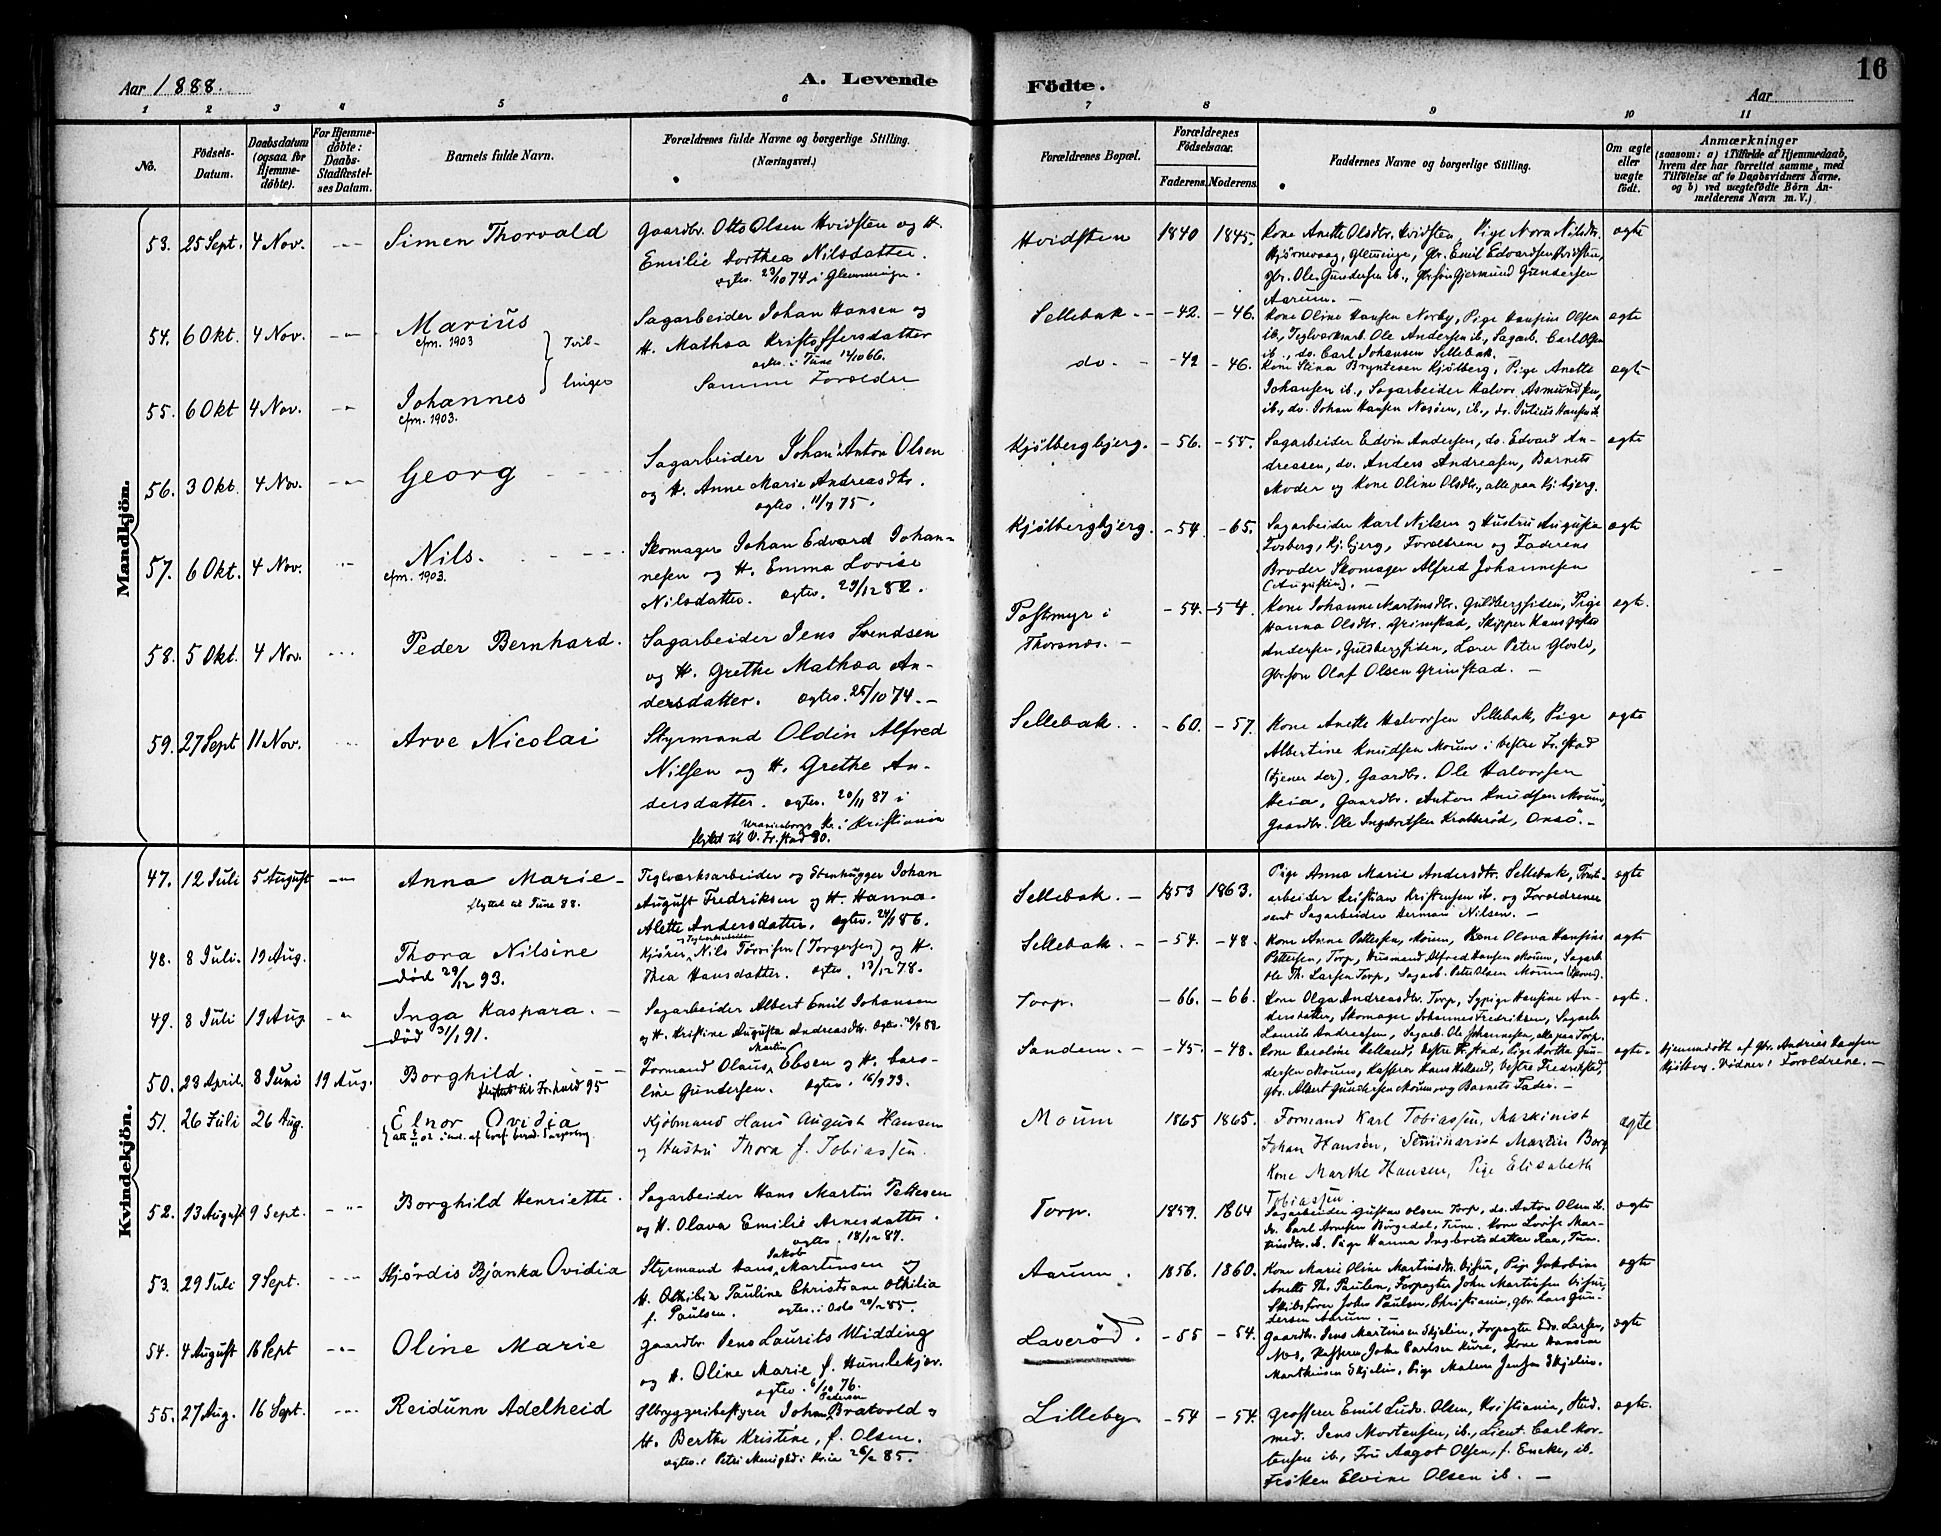 Aar 1888.
A. Levende
Födte.
Aar
16
1 2 3 4 5 6 7 8 9 10 11
No.
Födsels-
Datum.
Daabsdatum
(ogsaa for
Hjemme-
döbte).
For Hjemme-
döbte:
Daabs-
Stadfæstel-
ses Datum.
Barnets fulde Navn.
Forældrenes fulde Navne og borgerlige Stilling.
(Næringsvei.)
Forældrenes Bopæl.
Forældrenes
Födselsaar.
Faderens. Moderens.
Faddernes Navne og borgerlige Stilling.
Om ægte
eller
uægte
født.
Anmærkninger
(saasom: a) i Tilfælde af Hjemmedaab,
hvem der har forrettet samme, med
Tilföielse af to Daabsvidners Navne,
og b) ved uægtefödte Börn An-
melderens Navn m. V.)
Mandkjön.
53. 25 Sept. 4 Nov. Simen Thorvald
Gaardbr. Otto Olsen Hvidsten og H.
Emilie Dorthea Nilsdatter.
ægtev. 23/10 74 i Glemminge.
Hvidsten 1840 1845.
Kone Anette Olsdtr. Hvidsten, Pige Nora Nilsdtr.
Glemminge, Gbr. Emil Edvardsen Hvidsten,
gbr. Ole Gundersen ib., Gbr.søn Gjermund Gundersen
Aarum. –
ægte
54. 6 Okt. 4 Nov. Marius
cfm. 1903
Tvil-
linger
Sagarbeider Johan Hansen og
H. Mathea Kristoffersdatter
ægtev. i Tune 14/10 66.
Sellebak. – 42. – 46.
Kone Oline Hansen Norby, Pige Hansine Olsen
ib., Teglværksarb. Ole Andersen ib., Sagarb. Carl Olsen
ib., do. Carl Johansen Sellebak. –
ægte
55. 6 Okt 4 Nov. Johannes
cfm. 1903.
Samme Forældre
do. – 42 – 46.
Kone Stina Bryntesen Kjølberg, Pige Anette
Johansen ib., Sagarbeider Halvor Asmundsen,
ib., do. Johan Hansen Nesøen, ib., do. Julius Hansen ib.
ægte
56. 3 Okt. 4 Nov. Georg
Sagarbeider Johan Anton Olsen
og H. Anne Marie Andreasdtr.
ægtev. 11/7 75.
Kjølbergbjerg. – 56. – 55.
Sagarbeider Edvin Andersen, do. Edvard An-
dreasen, do. Anders Andreasen, Barnets
Moder og Kone Oline Olsdtr., alle paa Kj.bjerg.
ægte
57. 6 Okt. 4 Nov. Nils.
cfm. 1903.
Skomager Johan Edvard Johan-
nesen og H. Emma Lovise
Nilsdatter. ægtev. 29/12 82.
Kjølbergbjerg. – 54. – 65.
Sagarbeider Karl Nilsen og Hustru Augusta
Fosberg, Kj.bjerg, Forældrene og Faderens
Broder Skomager Alfred Johannesen
(Augustin). –
ægte
58. 5 Okt. 4 Nov. Peder Bernhard.
Sagarbeider Jens Svendsen
og H. Grethe Mathea An-
dersdatter. ægtev. 25/10 74. –
Postmyr i
Thorsnæs. – – 54. – 54.
Kone Johanne Martinsdtr. Guldbergsiden, Pige
Hanna Olsdtr. Grimstad, Skipper Hans
Andersen, Guldbergsiden, Lærer Peter Glosli,
Gbr.søn Olaf Olsen Grimstad. –
ægte.
59. 27 Sept 11 Nov. Arve Nicolai
Styrmand Oldin Alfred
Nilsen og H. Grethe An-
dersdatter. ægtev. 20/11 87 i
Uranienborgs K. i Kristiania
flyttet til V. Fr.stad 90.
Sellebak. – 60. – 57.
Kone Anette Halvorsen Sellebak, Pige
Albertine Knudsen Moum i Vestre Fr.stad
(tjener der), Gaardbr. Ole Halvorsen
Heia, Gaardbr. Anton Knudsen Moum,
Gaardbr. Ole Ingebretsen Krabberød, Onsø. –
ægte
Kvindekjön.
47. 12 Juli 5 August Anna Marie –
flyttet til Tune 88.
Teglværksarbeider og Stenhugger Johan
August Fredriksen og H. Hanna
Alette Andersdatter. ægtev. 24/1 86.
Sellebak. – 1853 1863.
Pige Anna Marie Andersdtr. Sellebak, Tomt-
arbeider Kristian Kristensen ib. og Forældrene
samt Sagarbeider Herman Nilsen. –
ægte
48. 8 Juli. 19 Aug. Thora Nilsine
død 29/12 93.
Kjører Nils Torrisen (Torgersen) og H.
Thea Hansdatter. ægtev. 13/12 78.
Sellebak. – – 54. – 48.
Kone Anne Pettersen, Moum, Kone Olava Hansine
Pettersen, Torp, Husmand Alfred Hansen Moum, Sagarb.
Ole Th. Larsen Torp, Sagarb. Peter Olsen Moum
ægte
49. 8 Juli 19 Aug Inga Kaspara. –
død 31/1 91.
Sagarbeider Albert Emil Johansen
og H. Kristine Augusta Andreasdtr. ægtev. 88
Torp. – 66. – 66.
Kone Olga Andreasdtr. Torp, Sypige Hansine An-
dersdatter, Skomager Johannes Fredriksen, Sagarb.
Laurits Andreassen, Sagarb. Ole Johannesen, alle paa Torp.
ægte.
50. 23 April. 8 Juni 19 Aug. Borghild. –
flyttet til Fr.hald 95
Formand Olaus Martin Ebsen og H. Caro-
line Gundersen. ægtev. 16/9 73.
Sandem. – – 45. – 48.
Kone Caroline Helland, Vestre Fr.stad, Pige Dorthe Gun-
dersen Moum, Kasserer Hans Helland, Vestre Fredrikstad,
gbr. Albert Gundersen Moum, og Barnets Fader. –
ægte.
Hjemmedøbt af Gbr. Andreas Hansen
Kjølberg. Vidner: Forældrene. –
51. 26 Juli 26 Aug. Elnor Ovidia
Kjøbmand Hans August Hansen
og Hustru Thora f. Tobiassen.
Moum 1865 1865.
Formand Karl Tobiassen, Maskinist
Johan Hansen, Seminarist Martin Borg
Kone Marthe Hansen, Pige Elisabeth
Tobiassen.
ægte
52. 13 August 9 Sept. Borghild Henriette.
Sagarbeider Hans Martin Pettersen
og H. Olava Emilie Arnesdatter.
ægtev. 18/12 87.
Torp. 1859. 1864
Sagarbeider Gustav Olsen Torp, do. Anton Olsen ib.
do. Carl Arnesen Borgedal, Tune. Kone Lovise Mar-
tinsdtr. ib. Pige Hanna Ingebretsdatter Raa, Tune.
ægte
53. 29 Juli 9 Sept. Hjørdis Bjanka Ovidia
Styrmand Hans Jakob Martinsen og
H. Othilie Pauline Christiane Othilia
f. Paulsen. ægtev. i Oslo 20/2 85.
Aarum. 1856. 1860.
Kone Marie Oline Martinsdtr. Viker, Pige Jakobine
Anette Th. Paulsen, Forpagter John Martinsen Viker,
Skibsfører Johs Paulsen, Christiania, gbr. Lars Gun-
dersen Aarum. –
ægte
54. 4 August 16 Sept Oline Marie
Gaardbr. Jens Laurits Widding
og H. Oline Marie f. Humlekjær.
ægtev. 6/10 76.
Laverød. – 55 – 54.
Gaardbr. Jens Martinsen Skjelin, Forpagter Edv. Larsen,
Næs, Kasserer John Carlsen Kure, Kone Hansine
Marthinsen Skjelin, Pige Malene Jensen Skjelin.
ægte
55. 27 Aug. 16 Sept. Reidunn Adelheid
Ølbryggeribestyrer Johan Pedersen Bratvold og
H. Berthe Kristine, f. Olsen.
ægtev. i Petri Menighed i Kr.ia 26/2 85.
Lilleby – 54 – 54.
Grosserer Emil Ludv. Olsen, Kristiania, Stud.
med. Jens Mortensen, ib., Lieut. Carl Mor-
tensen ib., Fru Aagot Olsen, f. Encke, ib.
Frøken Elvine Olsen ib. –
ægte.